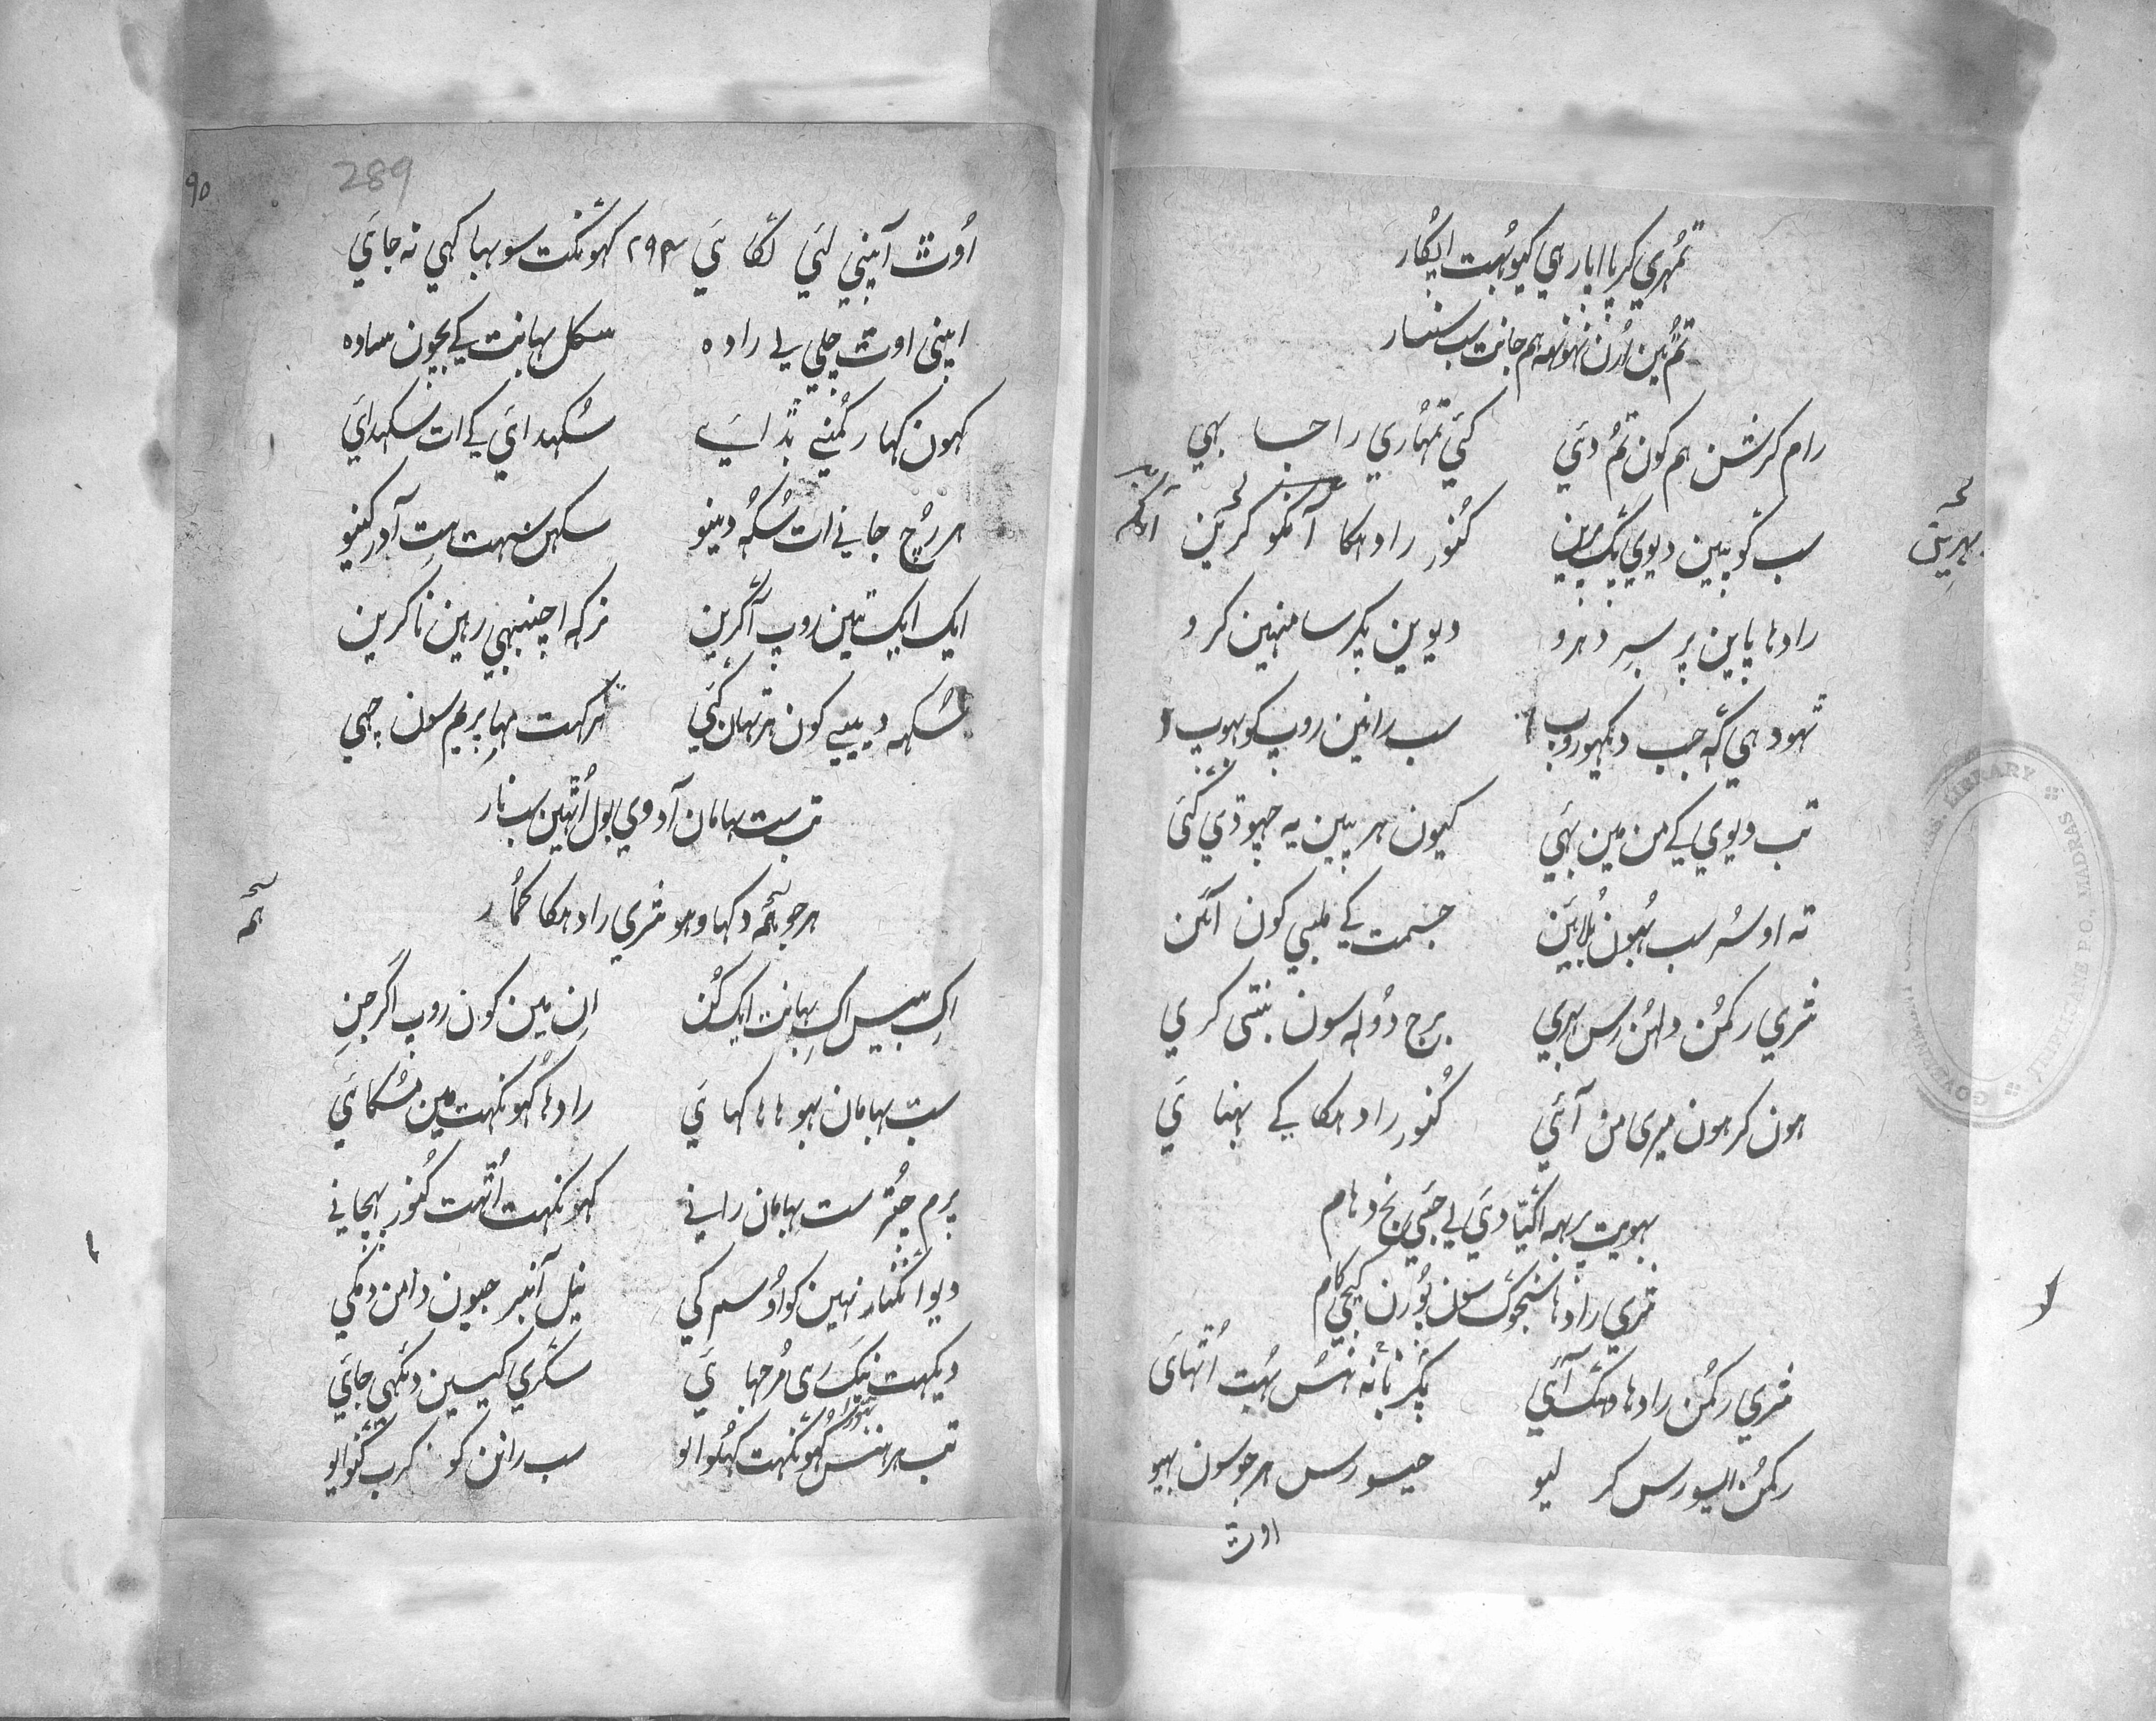 تمُہري کرپا اپار ہي کیو بہُت اپکار
تمُ تین اُرن نہونہہ ہم جانت سب سنسار
رام کرشن ہم کون تمُ دئي کئي تمُہاري راجا بہي
سب گوپین دیوي پگ پرین کنُور رادہکا آنکو کرین
رادہا پاین پر سِر دہرو دیوین پکر سامنہین کرو
تہود ہي گہ جب دیکہو روپ سب رانین روپ کو بہوپ
تب دیوي کے من مین بہئي کیون ہر پین یہ چہوڈي گئي
تہ اوسُر سب بہُون بُلائین جسمت کے ملبي کون آئن
شري رکمُن دلہُن رس بہري برج دوُلہ سون بنتي کري
ہون کر ہون میري من آئي کنُور رادہکا کے پہنا ئي
بہوپت برہمہ اگیّا دئي لے جئي نج دہام
شري رادہا سنجوگ سون پوُرن کیجي کام
شري رکمُن رادہا ڈہگ آئي پکر بانہ ہنس بہُت اُٹہائي
رکمُن ایسو رس کر لیو جیسو رس ہر جو سون بہیو
اوٹ
289
اوُٹ آپنِي لئي لگا ئي ۲۹۴ گہونگٹ سوبہا کہي نہ جائي
اپني اوٹ چلي لے رادہ سکل بہانت کے بچون سادہ
کہون کہا رکمُنے بڈائے سُکہدائي کے ات سکہدائي
ہر رُچ جانے ات سُکہ دینو سکہن سہت ہت آدر کینو
ایک ایک تین روپ آگرین نرکہ اچنبہي رہین ناگرین
سُکہہ دیبے کون ہر تہان گئي ہرکہت مہا پریم سون چہي
تب ست بہامان آد وي بول اُٹہین سب نار
ہر جو ہمہ دکہاوہو شري رادہکا کمُار
اک بیس اک بہانت ایک گن اِن مین کون روپ اگر جن
ست بہامان بہو ہاہا کہائي رادہا گہونگہٹ مین مسُکائي
پرم چتُر ست بہامان رانے گہونگہٹ اُٹہت کنُور پہچانے
دیوانگنا نہین کواوُ سم کي نیل آنبر جیون دامن دمکي
دیکہت نیک رہي مُرجہا ئي سگري ایسین دیکہي جائي
تب ہر ہنس گہونگہٹ کہُلوایو سب رانن کو گرب گنوایو